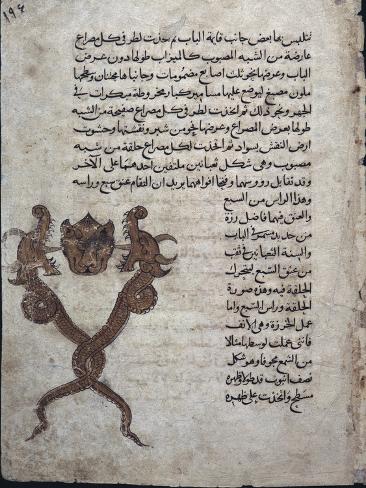 ١٩٤
تلبيس بها بعض جانب قايمة الباب ثم يحذت لطرفي كل مصراع
عارضة من الشبه المصبوب كالميزاب طولها دون عرض
الباب وعرضها نحو ثلث اصابع مضمومات وجانباها
ليوضع عليها مسامير كبار مخروطة مبكرات في
ثم اتخذت لطرفي كل مصراع صفيحة من الشبه
طولها بعرض المصراع وعرضها نحو من شبر ونقشتها وحشوت
ارض النقش بسواد ثم اتخذت لكل مصراع حلقة من شبه
مصبوب وهي شكل ثعبانين ملتفين احدهما على الآخر
وقد تقابل رووسهما وفتحا افواههما يريد ان التقام عنق سبع وراسه
وهذا الراس من السبع
والعنق فيهما فاضل رزة
من حديد في الباب
والبسة الثعابين في ثقب
من عنق السبع لتتحرك
الحلقة فيه وهذه صورة
الحلقة وراس السبع واما
عمل الخرزة وهي الأنف
فانني عملت لوسطها مثالا
من الشمع مجوفا وهو شكل
نصف انبوب قد طولا وظهره
مسطح واتخذت على ظهره